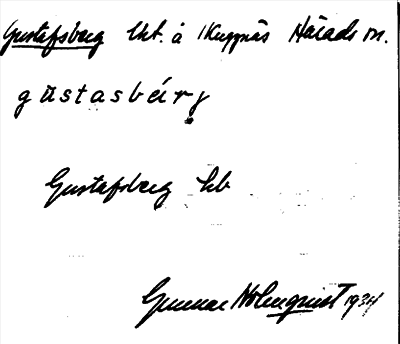 Gustafsberg lht. å Kuggnäs Härads m.
gustasbärj
Gustafsberg lhb
Gunnar Holmquist 1934